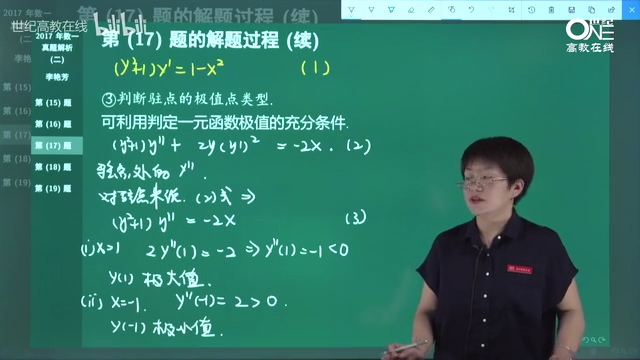 世纪高教在线 bilibili
2017 年数一
真题解析
(二)
李艳芳
第 (15) 题
第 (16) 题
第 (17) 题
第 (18) 题
第 (19) 题
ONE
高教在线
第 (17) 题的解题过程 (续)
(y²+1)y' = 1-x² (1)
③判断驻点的极值点类型.
可利用判定一元函数极值的充分条件.
(y²+1)y'' + 2y(y')² = -2x. (2)
驻点处的 y''.
对驻点来说. (2)式 ⇒
(y²+1) y'' = -2x (3)
(i) x=1 2y''(1) = -2 ⇒ y''(1) = -1 < 0
y(1) 极大值.
(ii) x=-1. y''(-1) = 2 > 0.
y(-1) 极小值.